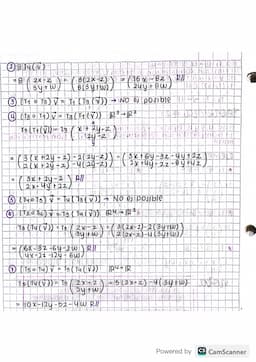 ② 8T4(v⃗)
= 8 (2x-z / 3y+w) = (8(2x-z) / 8(3y+w)) = (16x-8z / 24y+8w) R//
③ (T1 ∘ T3) v⃗ = T1 (T3(v⃗)) → NO es posible
④ (T3 ∘ T2) v⃗ = T3 (T2(v⃗)) ℝ³→ℝ²
T3 (T2(v⃗)) = T3 (x+2y-z / 2y-z)
= (3(x+2y-z)-2(2y-z) / 2(x+2y-z)-4(2y-z)) = (3x+6y-3z-4y+2z / 2x+4y-2z-8y+4z)
= (3x+2y-z / 2x-4y+2z) R//
⑤ (T4∘T2) v⃗ = T4 (T2(v⃗)) → No es posible
⑥ (T3∘T4) v⃗ = T3 (T4(v⃗)) ℝ⁴→ℝ²
T3 (T4(v⃗)) = T3 (2x-z / 3y+w) = (3(2x-z)-2(3y+w) / 2(2x-z)-4(3y+w))
= (6x-3z-6y-2w / 4x-2z-12y-4w) R//
⑦ (T5∘T4) v⃗ = T5 (T4(v⃗)) ℝ⁴→ℝ
T5(T4(v⃗)) = T5 (2x-z / 3y+w) = 5(2x-z)-4(3y+w)
= 10x-12y-5z-4w R//
Powered by CS CamScanner